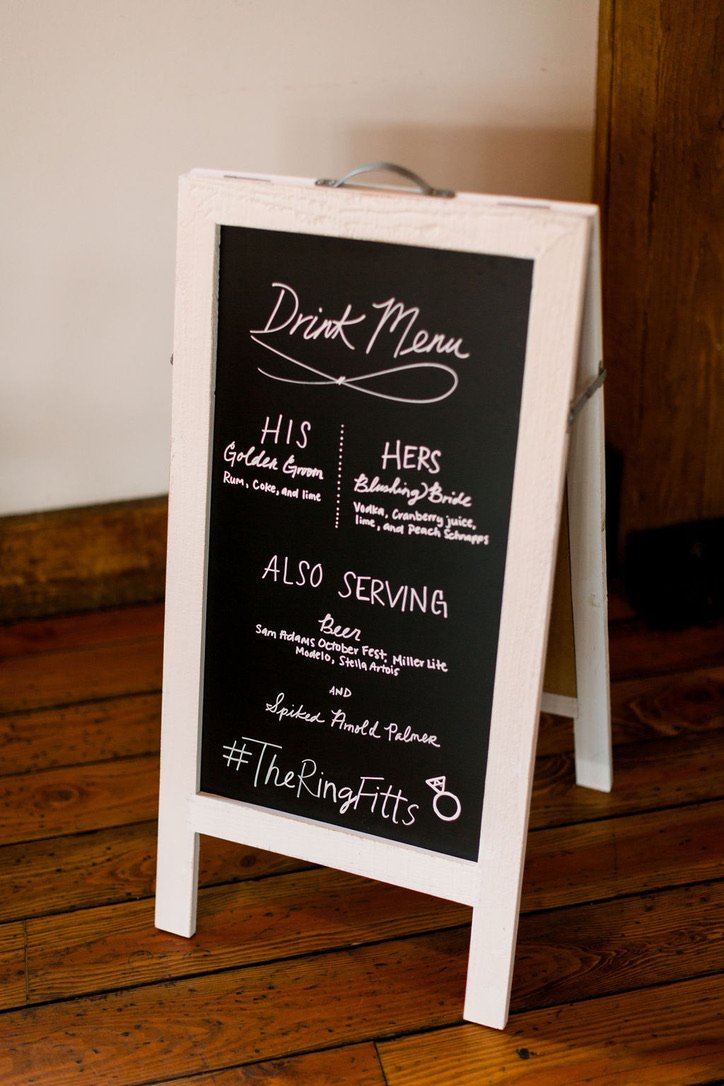 Drink Menu
HIS
Golden Groom
Rum, Coke, and lime
HERS
Blushing Bride
Vodka, Cranberry juice,
lime, and Peach Schnapps
ALSO SERVING
Beer
Sam Adams October Fest, Miller Lite
Modelo, Stella Artois
AND
Spiked Arnold Palmer
#TheRingFitts